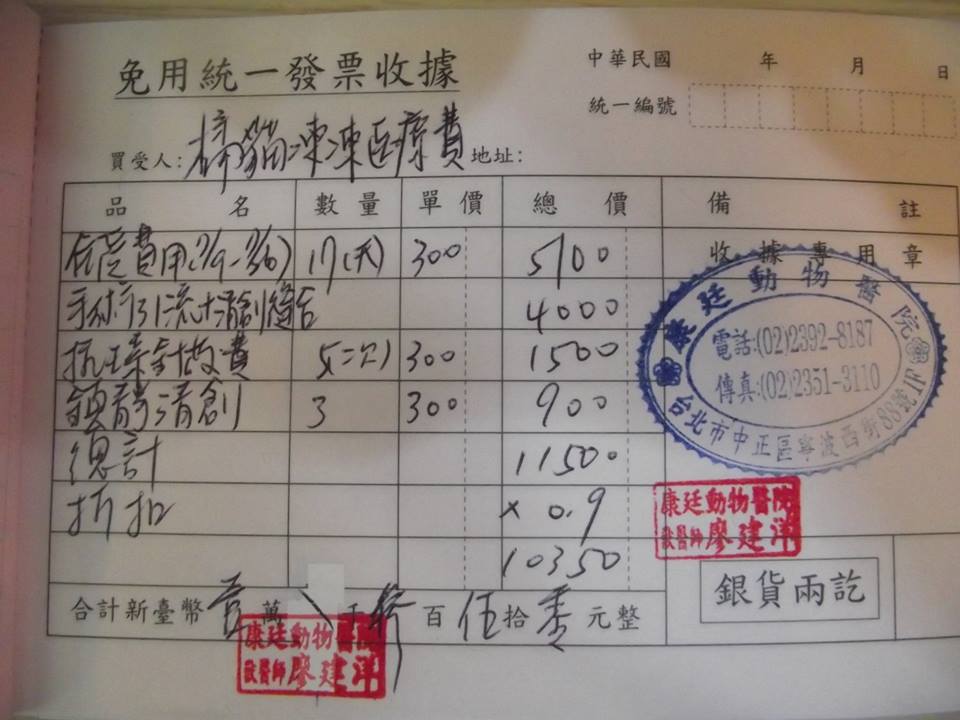 免用統一發票收據
中華民國 年 月 日
統一編號
買受人: 貓凍凍医療費 地址:
品名 數量 單價 總價 備註
住院費用 17(天) 300 5100 收據專用章
手術引流+清創縫合 4000
抗生素針收費 5(次) 300 1500
鎮静清創 3 300 900
總計 11500
折扣 × 0.9
10350
合計新臺幣 壹萬 千 百伍拾零元整
銀貨兩訖
康廷動物醫院
電話:(02)2392-8187
傳真:(02)2351-3110
台北市中正區寧波西街88號1F
康廷動物醫院
獸醫師廖建洋
康廷動物醫院
獸醫師廖建洋